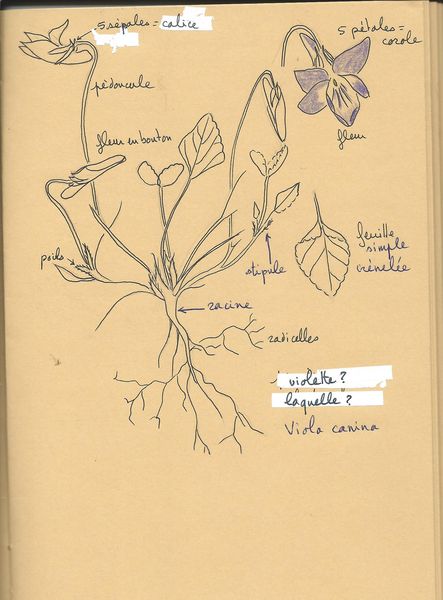 5 sépales = calice
5 pétales =
corole
pédoncule
fleur en bouton
fleur
poils
stipule
feuille
simple
crénelée
racine
radicelles
violette ?
laquelle ?
Viola canina